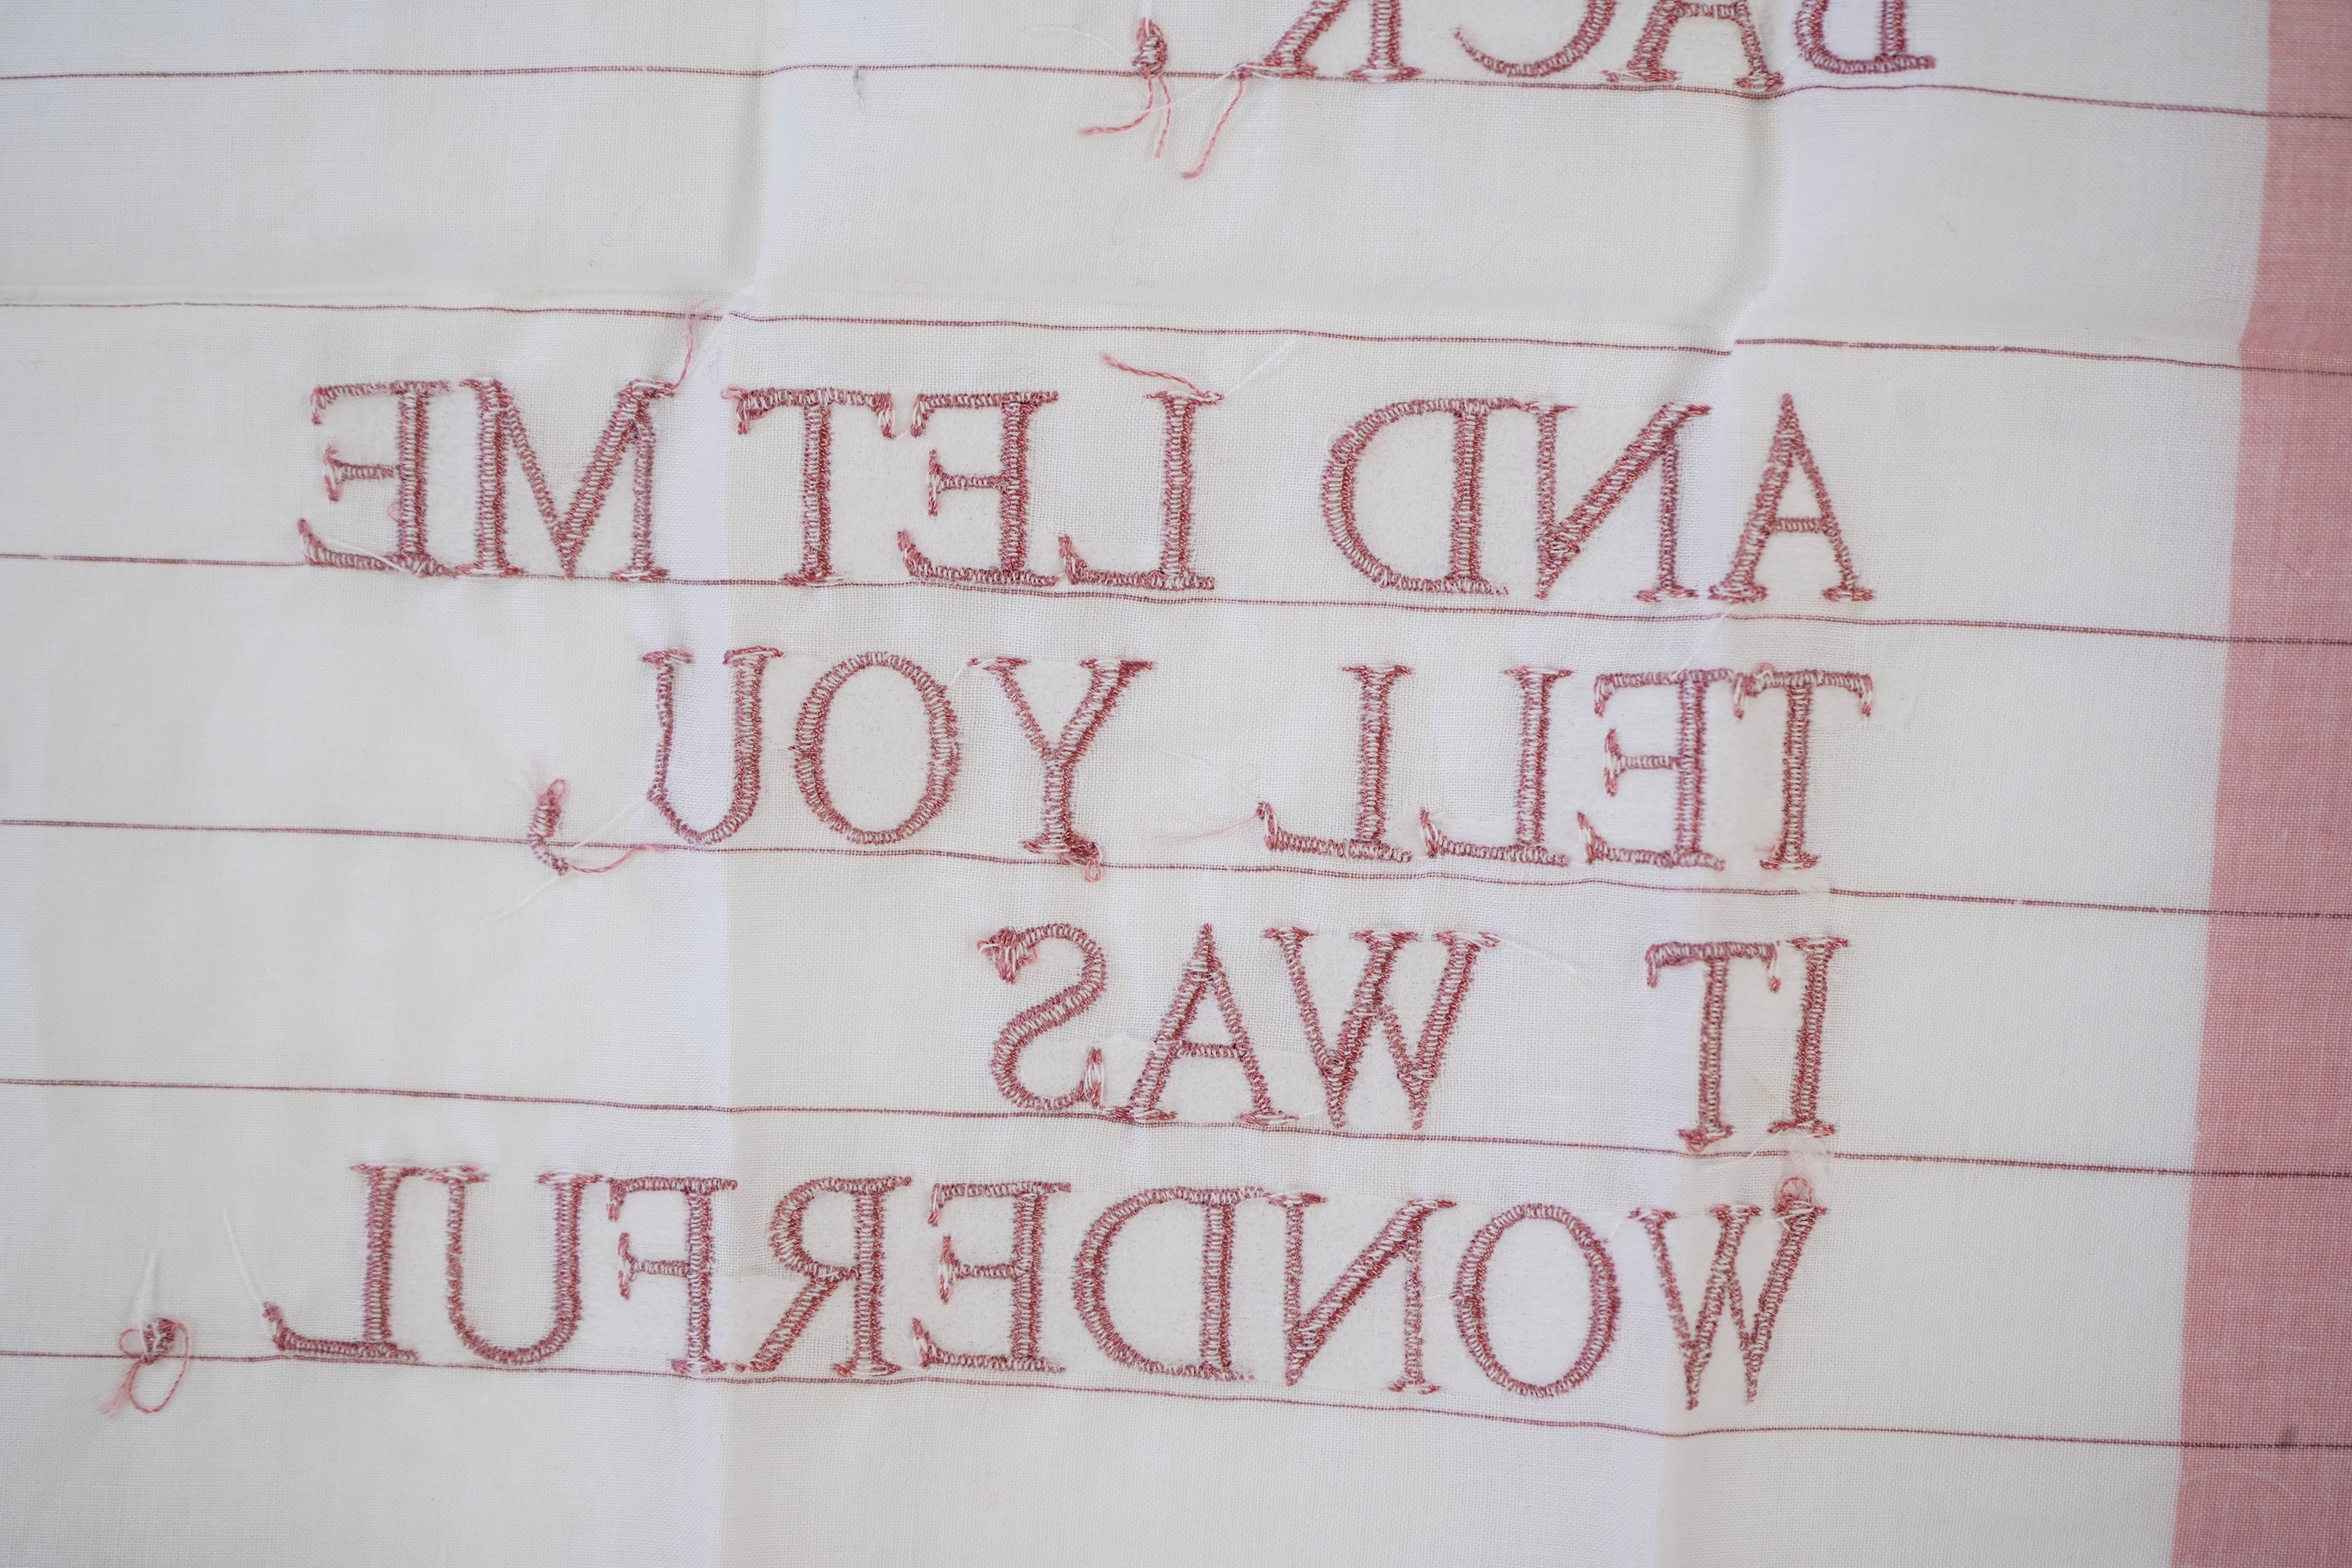 BACK,
AND LET ME
TELL YOU,
IT WAS
WONDERFUL.